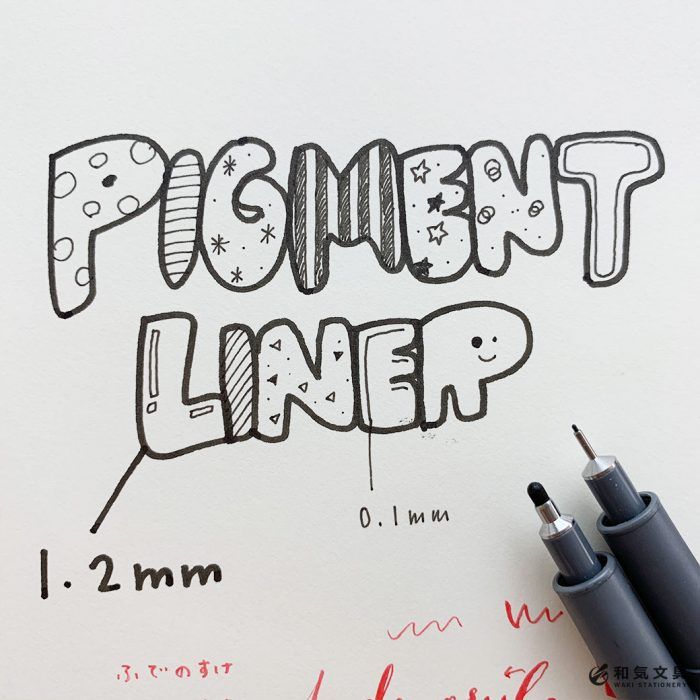 PIGMENT
LINER
0.1mm
1.2mm
ふでのすけ
和気文具
WAKI STATIONERY